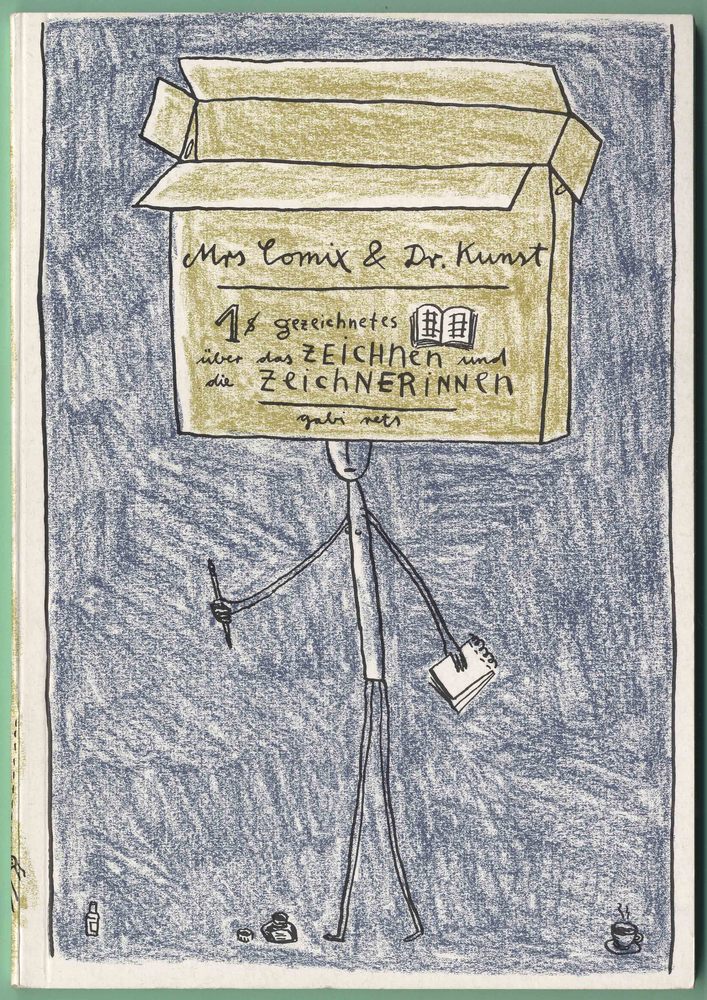 Mrs Comix & Dr. Kunst
1s gezeichnetes
über das ZEICHNEN und
die ZEICHNERINNEN
gabi rets